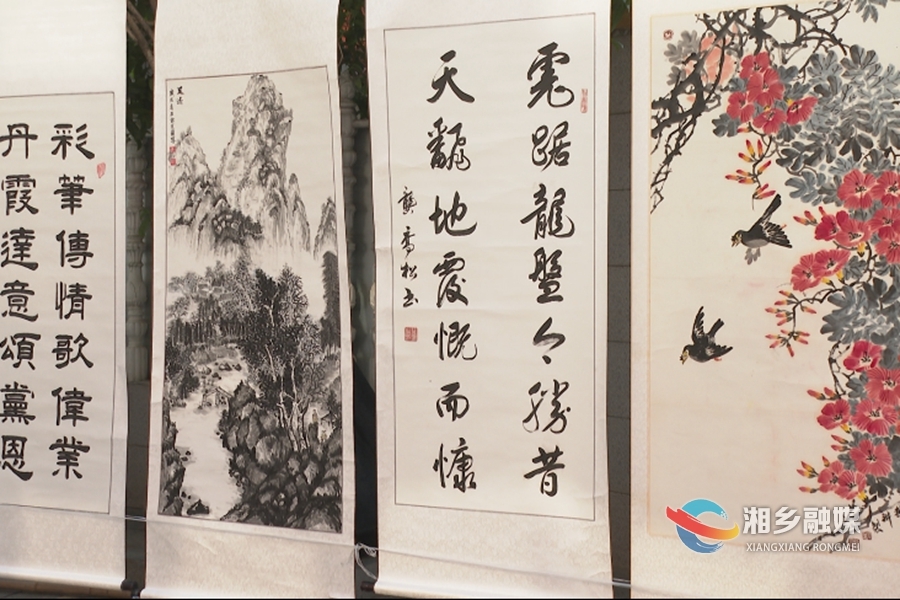 彩筆傳情歌偉業
丹霞達意頌黨恩
虎踞龍盤今勝昔
天翻地覆慨而慷
龔喬松书
湘乡融媒
XIANGXIANG RONGMEI